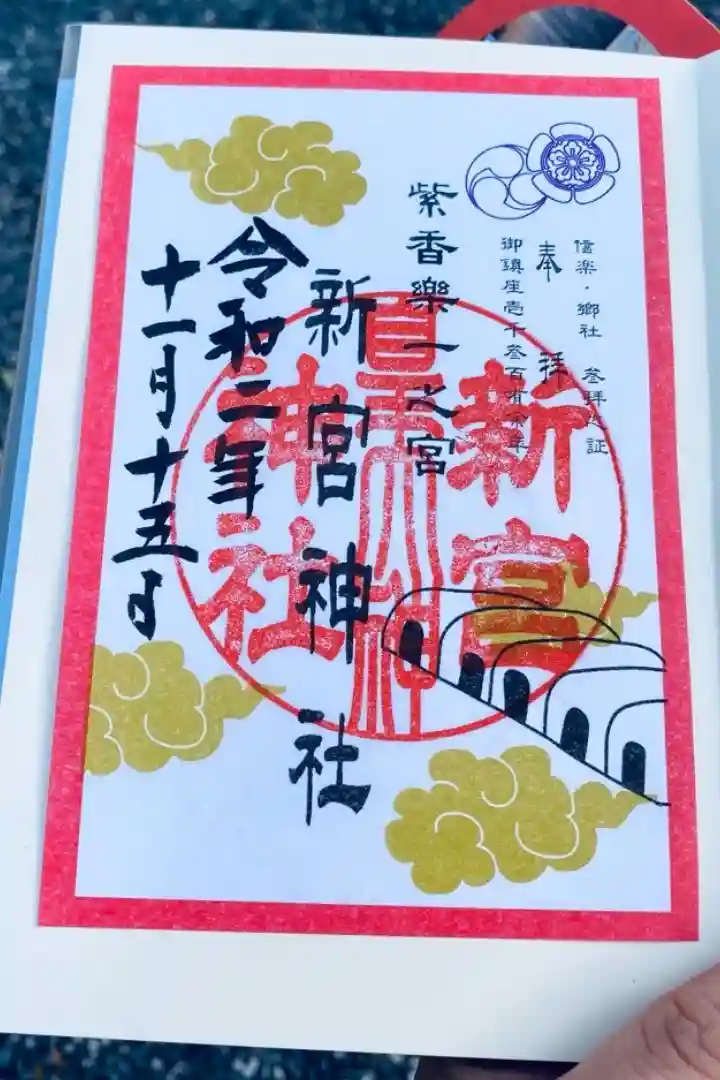 信楽・郷社 参拝之証
奉拝
御鎮座壱千参百有余年
紫香樂一之宮
新宮神社
令和二年
十一月十五日
新宮
神社